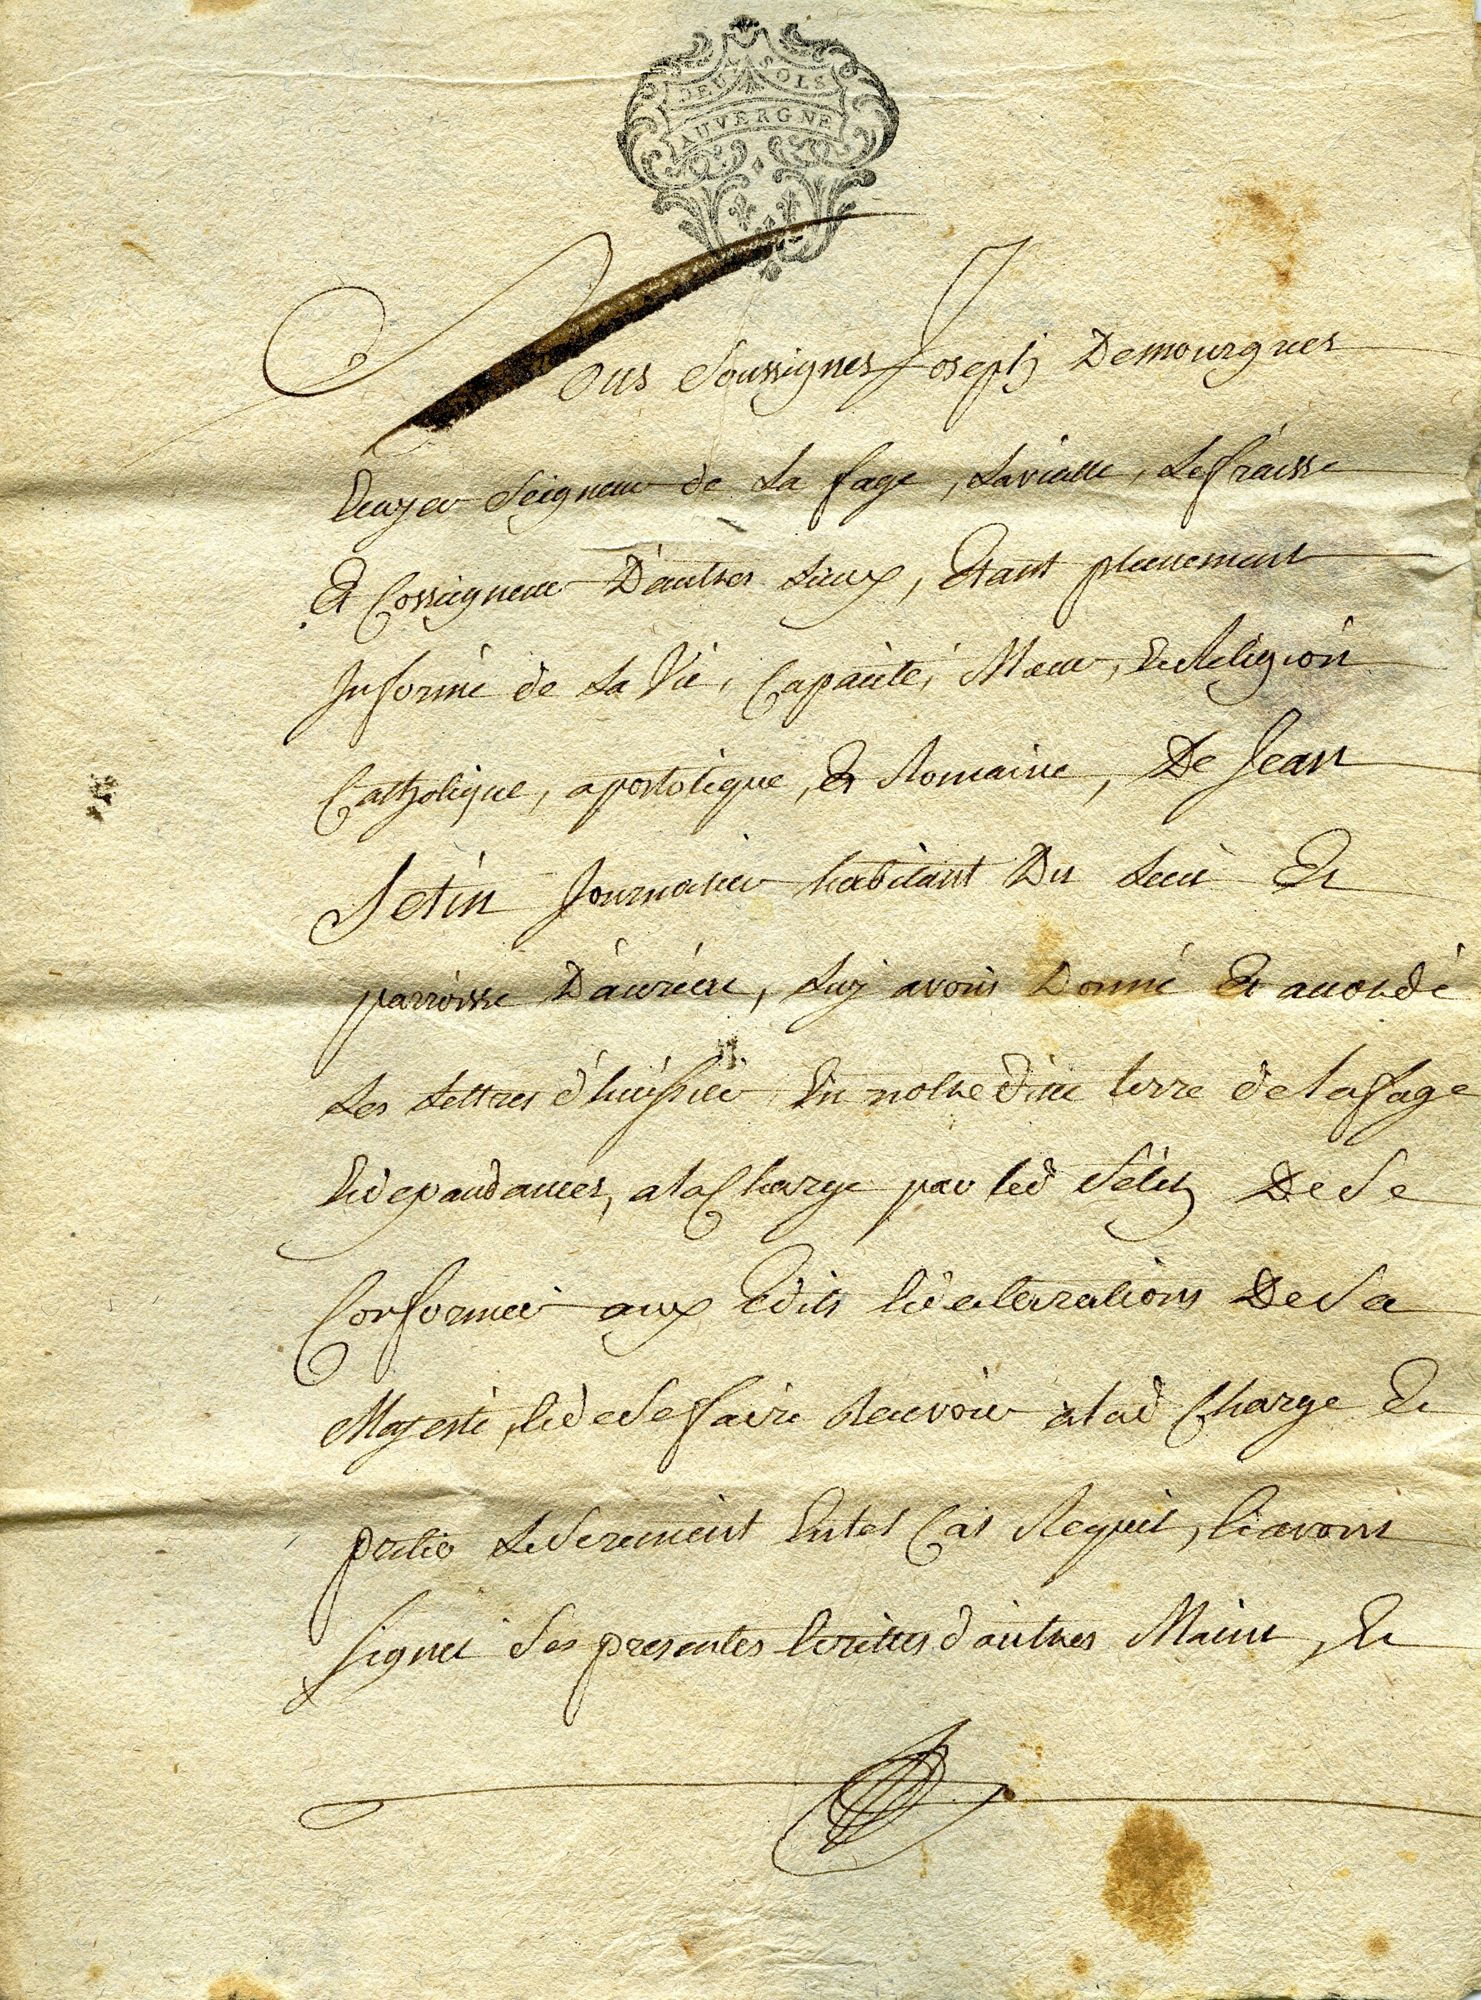 DEUX SOLS
AUVERGNE
Nous Soussignes Joseph Demourgues
Ecuyer Seigneur de La fage, Lavialle, Lefraisse
Et Cosseigneur D'autres Lieux, Etant plenement
Informé de La Vie, Capacité, Mœur, Et Religion
Catholique, apostolique, Et Romaine, De Jean
Setin Journalier habitant Du Lieu Et
parroisse D'auriere, Luy avons Donné Et accordé
Les Lettres d'huissier En notre dite terre de lafage
Et depandances, ala Charge par led Setin De Se
Conformer aux Edits Et declarations De Sa
Majesté, Et de Se faire Recevoir alad Charge Et
preter Le Serement En tel Cas Requis, Et avons
Signé Ses presentes Ecrittes d'autres Mains, Et